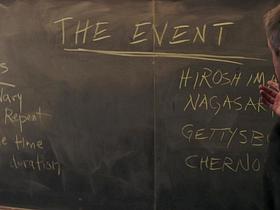 THE EVENT
s
e time
duration
HIROSHIM
NAGASAK
GETTYSB
CHERNO